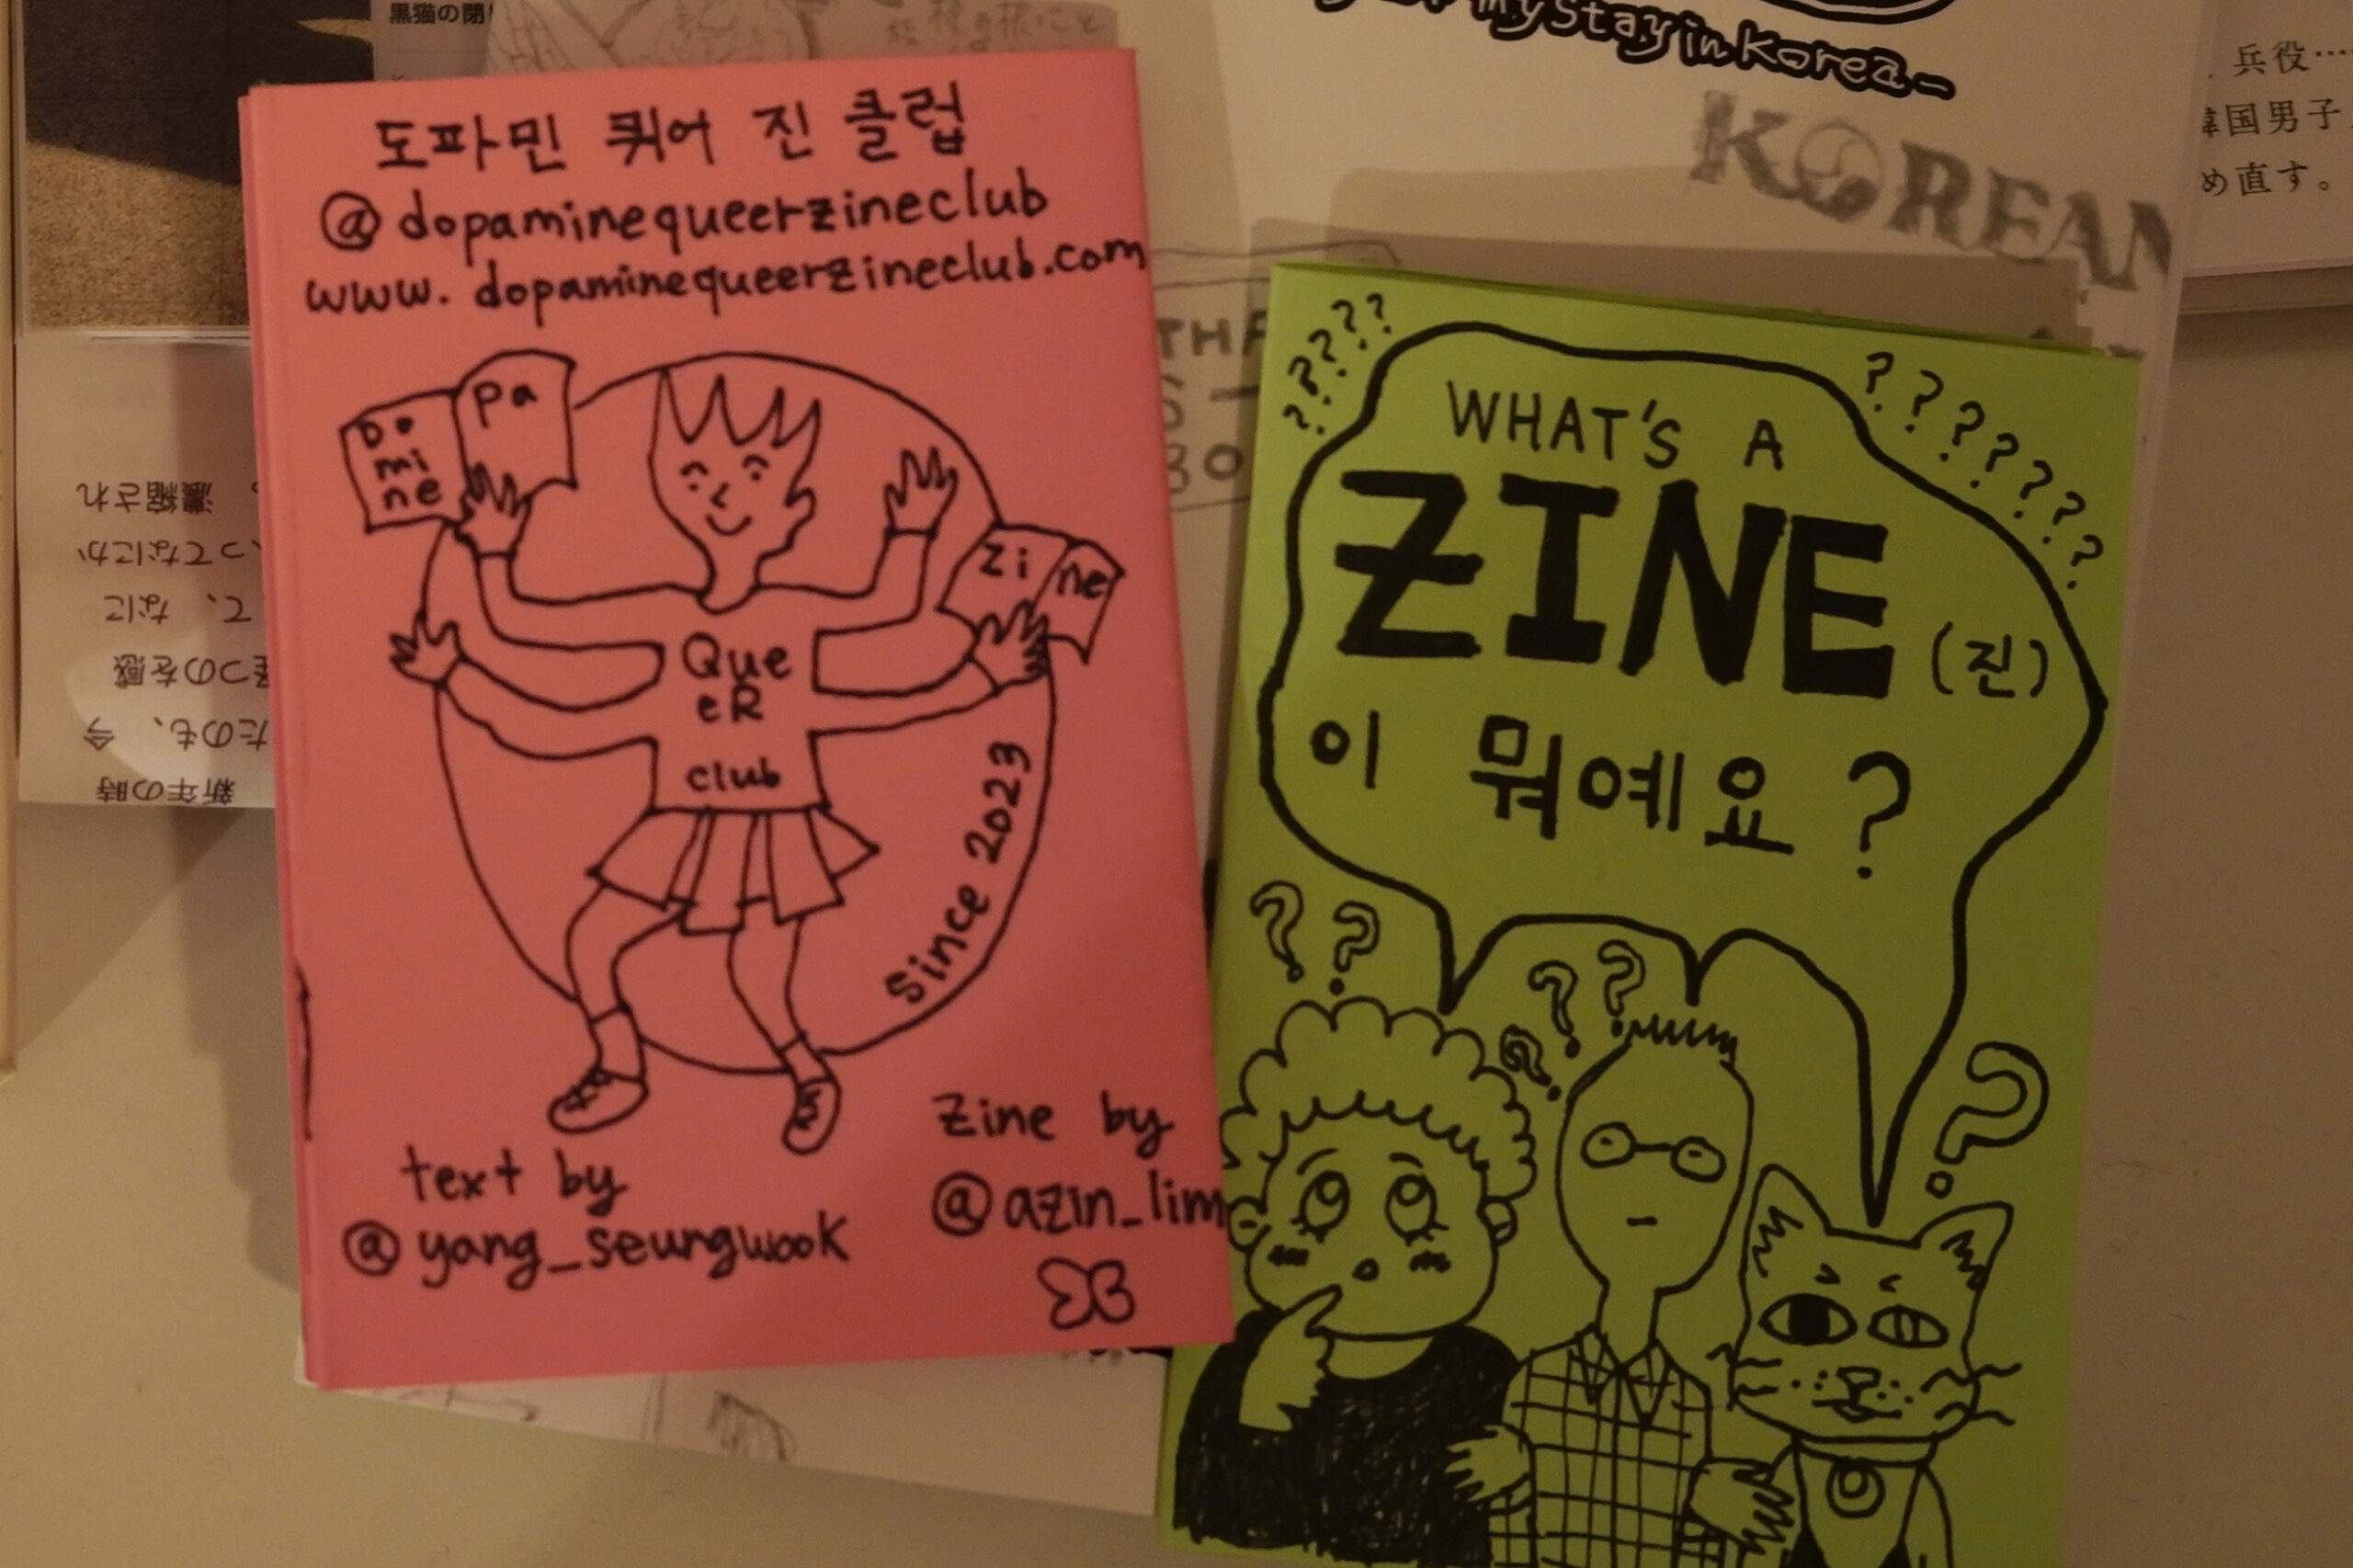 도파민 퀴어 진 클럽
@dopaminequeerzineclub
www.dopaminequeerzineclub.com
Do pa
mi
ne
zi ne
Que
eR
club
since 2023
text by
@yang_seungwook
zine by
@azin_lim
????? ???????
WHAT'S A
ZINE (진)
이 뭐예요?
? ?
? ? ?
?
my Stay in Korea-
KOREAN
兵役……
韓国男子
め直す。
黒猫の閉
新年の時
たのも、今
つのを感
て、なに
ってなにか
濃縮され